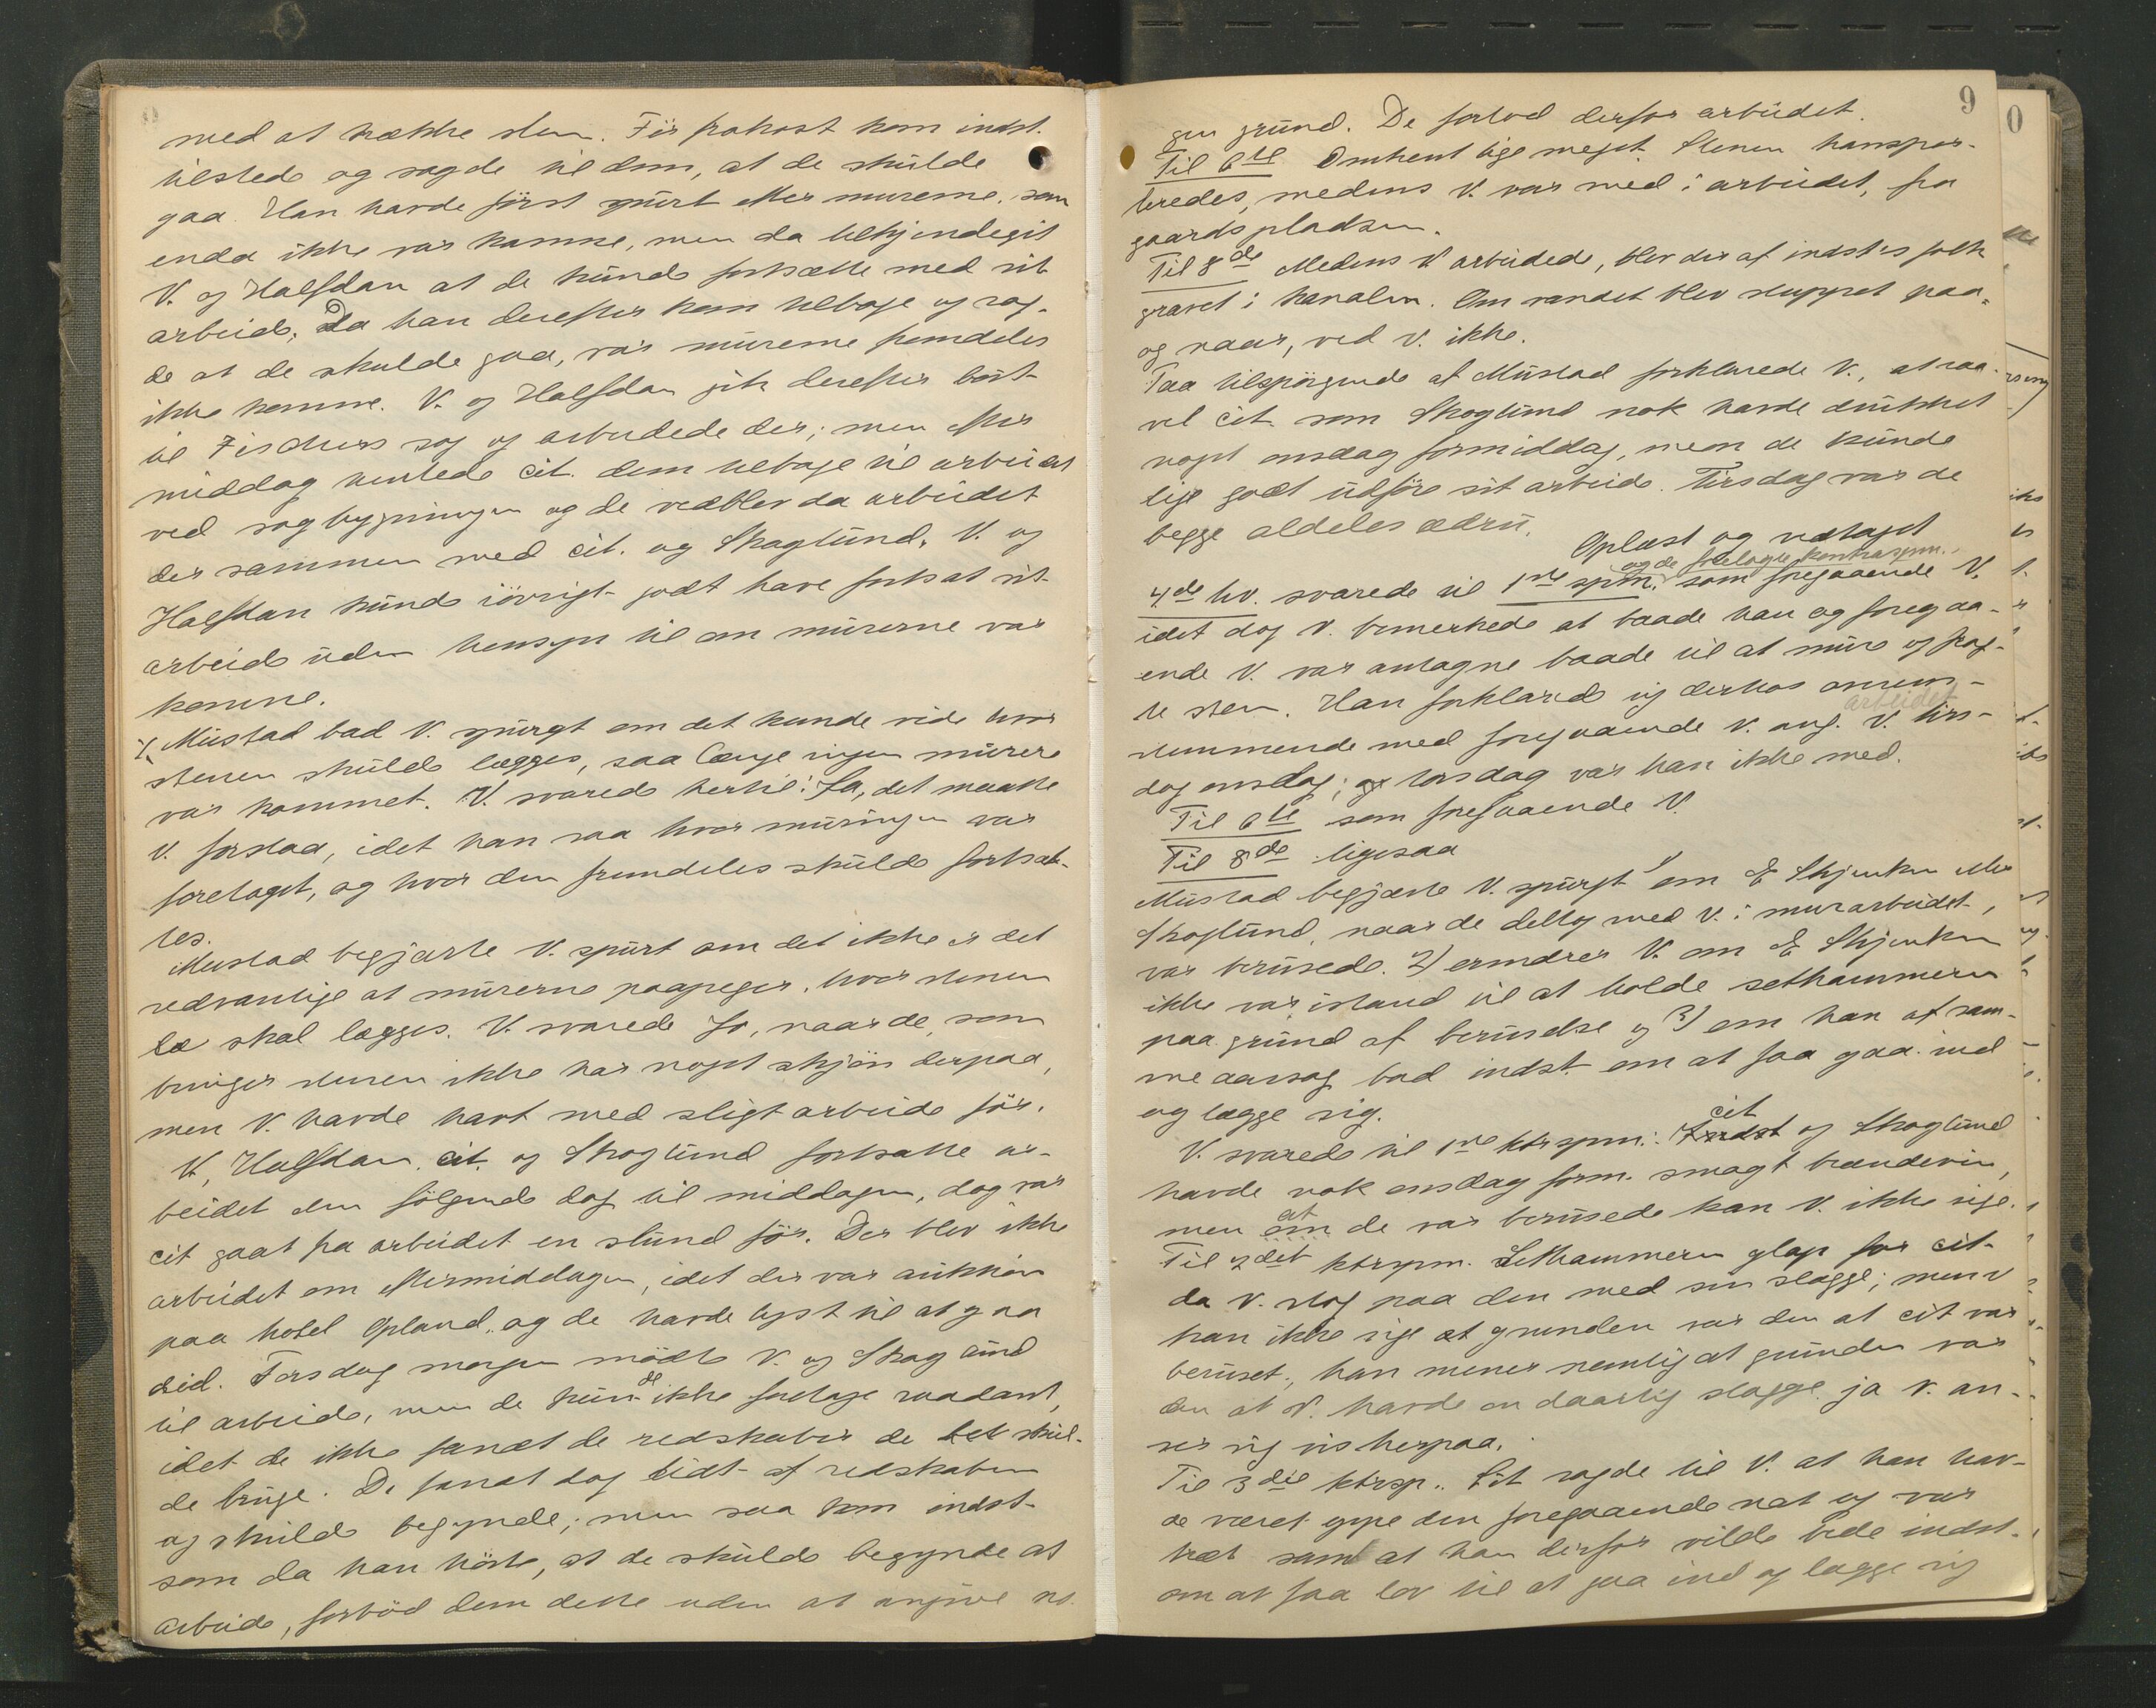 med at trække sten. Før frokost kom indst.
tilstede og sagde til dem, at de skulde
gaa. Han havde først spurt efter murerne, som
enda ikke var komne, men da tilkjendegit
V. og Halfdan at de kunde fortsætte med sit
arbeide. Da han derefter kom tilbage og sag-
de at de skulde gaa, var murerne fremdeles
ikke komne. V. og Halfdan gik derefter bort
til Fischers sag og arbeidede der; men efter
middag hentede cit. dem tilbage til arbeidet
ved sagbygningen og de vedblev da arbeidet
der sammen med cit. og Skoglund. V. og
Halfdan kunde iøvrigt godt have fortsat sit
arbeide uden hensyn til om murerne var
komne.
Mustad bad V. spurgt om det kunde vide hvor
stenen skulde lægges, saa længe ingen murere
var kommet. V. svarede hertil: Ja, det maatte
V. forstaa, idet han saa hvor muringen var
foretaget, og hvor den fremdeles skulde fortsæt-
tes.
Mustad begjærte V. spurt om det ikke er det
sedvanlige at murerne paapeger, hvor stenen
skal lægges. V. svarede Jo, naar de, som
bringer stenen ikke har noget skjøn derpaa,
men V. havde havt med sligt arbeide før.
V, Halfdan, cit. og Skoglund fortsatte ar-
beidet den følgende dag til middagen, dog var
cit gaat fra arbeidet en stund før. Der blev ikke
arbeidet om eftermiddagen, idet der var auktion
paa hotel Opland, og de havde lyst til at gaa
did. Torsdag morgen mødte V. og Skoglund
til arbeide, men de kunde ikke foretage saadant,
idet de ikke fandt de redskaber de skul-
de bruge. De fandt dog lidt af redskaben
og skulde begynde; men saa kom indst.
som da han hørte, at de skulde begynde at
arbeide, forbød dem dette uden at angive no-
9
gen grund. De forlod derfor arbeidet.
Til 6te Omtrent lige meget. Stenen transpor-
teredes, medens V. var med i arbeidet, fra
gaardspladsen.
Til 8de Medens V arbeidede, blev der af indst.s folk
gravet i kanalen. Om vandet blev sluppet paa,
og naar, ved V. ikke.
Paa tilspørgende af Mustad forklarede V., at saa-
vel cit. som Skoglund nok havde drukket
noget onsdag formiddag, men de kunde
lige godt udføre sit arbeide. Tirsdag var de
begge aldeles ædru.
Oplæst og vedtaget
4de hv. svarede til 1ste spm. og de forelagte kontraspm. som foregaaende V.
idet dog V. bemerkede at baade han og foregaa-
ende V. var antagne baade til at mure og frag-
te sten. Han forklarede sig derhos overens-
stemmende med foregaaende V. ang. V. arbeidet tirs-
dag onsdag; torsdag var han ikke med.
Til 6te som foregaaende V.
Til 8de ligesaa
Mustad begjærte V. spurgt 1) om E Skjenken eller
Skoglund, naar de deltog med V. i murarbeidet,
var berusede. 2) erindrer V. om E Skjenken
ikke var istand til at holde sethammeren
paa grund af beruselse og 3) om han af sam-
me aarsag bad indst. om at faa gaa ind
og lægge sig.
V. svarede til 1ste ktrspm.: Indst cit og Skoglund
havde nok onsdag form. smagt brændevin,
men om at de var berusede kan V. ikke sige.
Til 2det ktrspm. Sethammeren glap for cit.
da V. slog paa den med sin slægge; men V
kan ikke sige at grunden var den at cit var
beruset; han mener nemlig at grunden var
den at V. havde en daarlig slægge, ja V. an-
ser sig vis herpaa.
Til 3die ktrsp.: Cit sagde til V. at han hav-
de været oppe den foregaaende nat og var
træt samt at han derfor vilde bede indst.
om at faa lov til at gaa ind og lægge sig